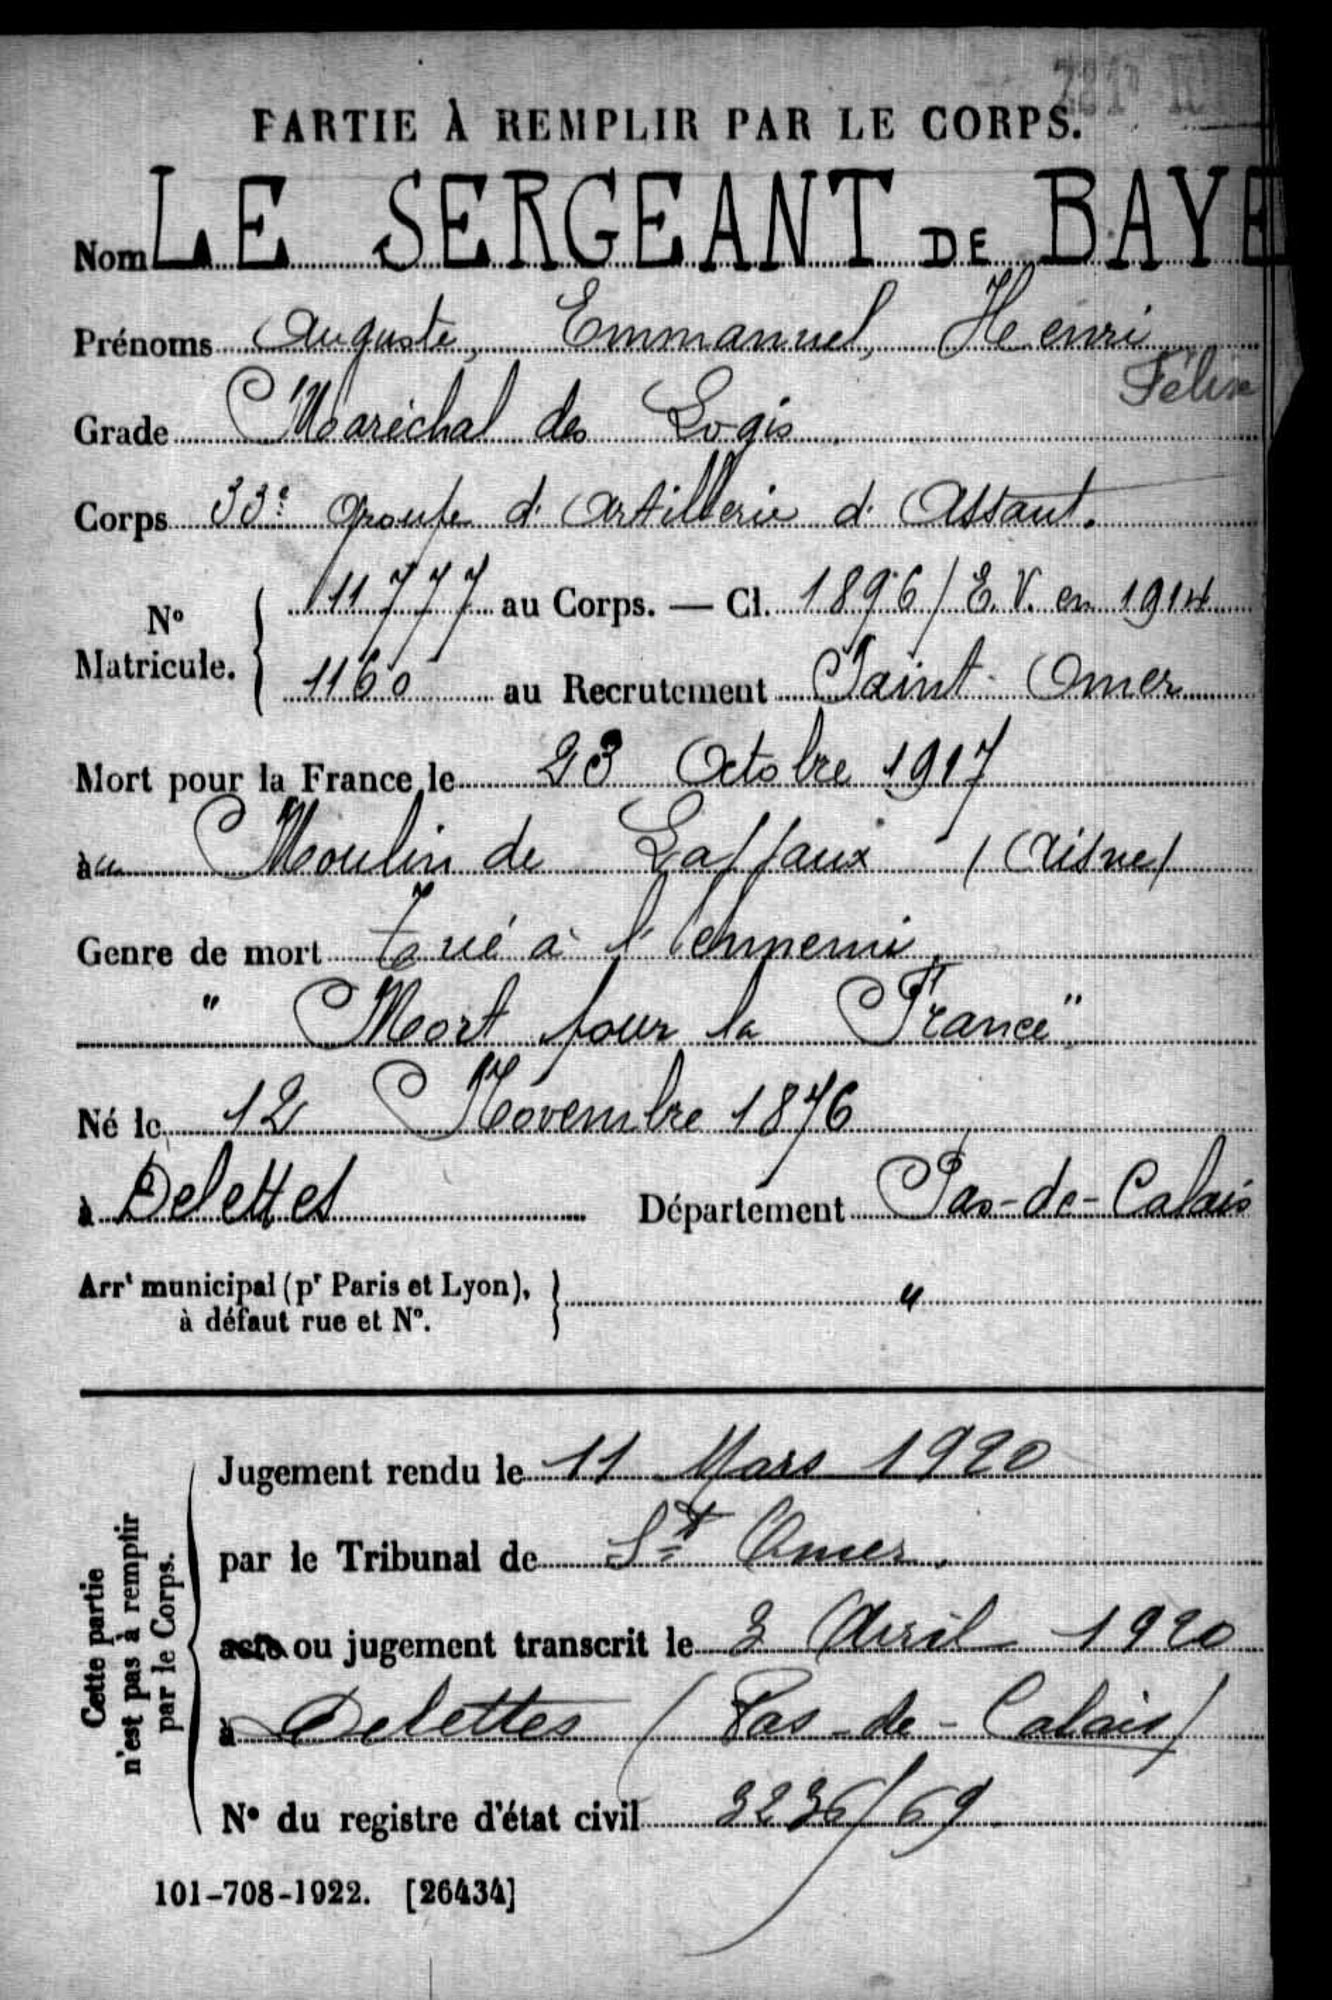 PARTIE À REMPLIR PAR LE CORPS.
Nom LE SERGEANT DE BAYE
Prénoms Auguste, Emmanuel, Henri
Félix
Grade Maréchal des Logis
Corps 33e groupe d'Artillerie d'Assaut.
No Matricule. 11777 au Corps. — Cl. 1896 / E. V. en 1914
1160 au Recrutement Saint-Omer
Mort pour la France le 23 Octobre 1917
au Moulin de Laffaux (Aisne)
Genre de mort Tué à l'ennemi
" Mort pour la France "
Né le 12 Novembre 1876
à Delettes Département Pas-de-Calais
Arrt municipal (pr Paris et Lyon), à défaut rue et N°. "
Cette partie n'est pas à remplir par le Corps.
Jugement rendu le 11 Mars 1920
par le Tribunal de St Omer.
acte ou jugement transcrit le 3 Avril 1920
à Delettes (Pas-de-Calais)
N° du registre d'état civil 3236/69
101-708-1922. [26434]